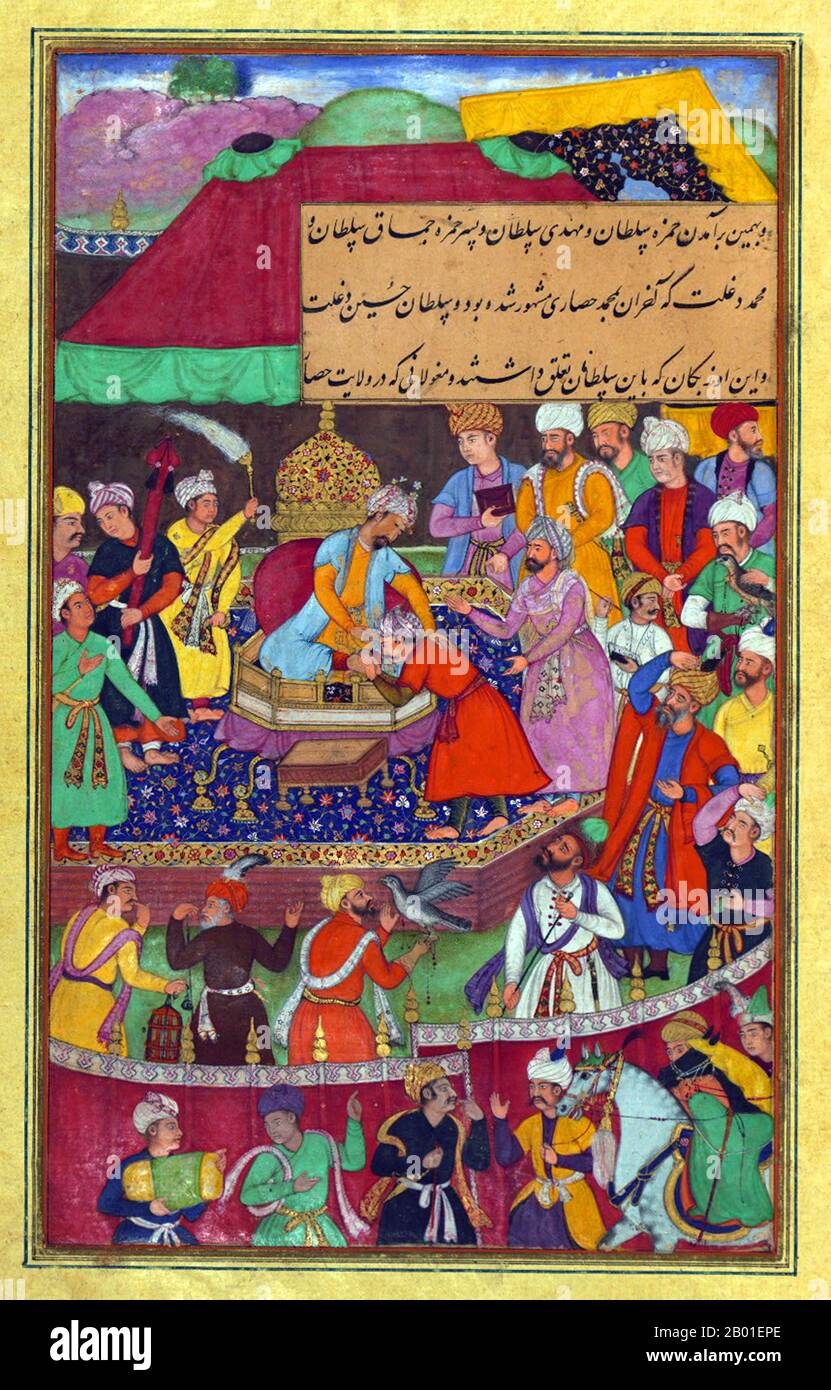 وبهمین برآمدن حمزه سلطان و مهدی سلطان و پسر حمزه سلطان و
محمد دغلت که آخران بمحمد حصاری مشهور شده بود و سلطان حسین دغلت
و این اوزبکان که باین سلطانان تعلق داشتند و مغولانی که در ولایت حصار
alamy
Image ID: 2B01EPE
www.alamy.com
alamy stock photo